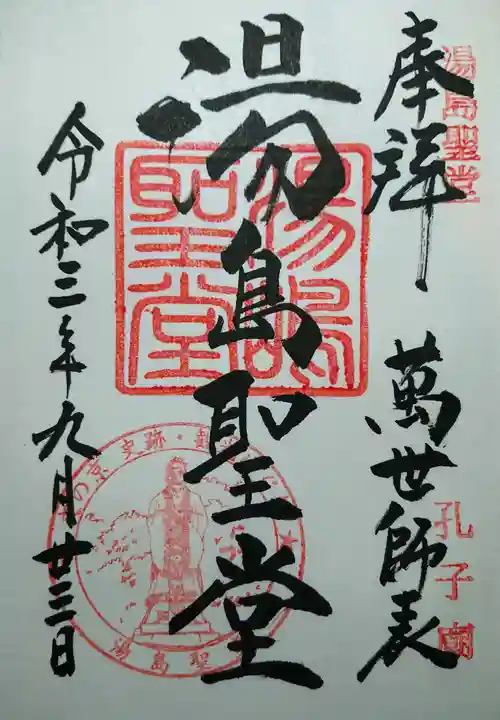 湯島聖堂
奉拝
萬世師表
孔子廟
湯島聖堂
湯島聖堂
史跡・
湯島聖
令和三年九月廿三日